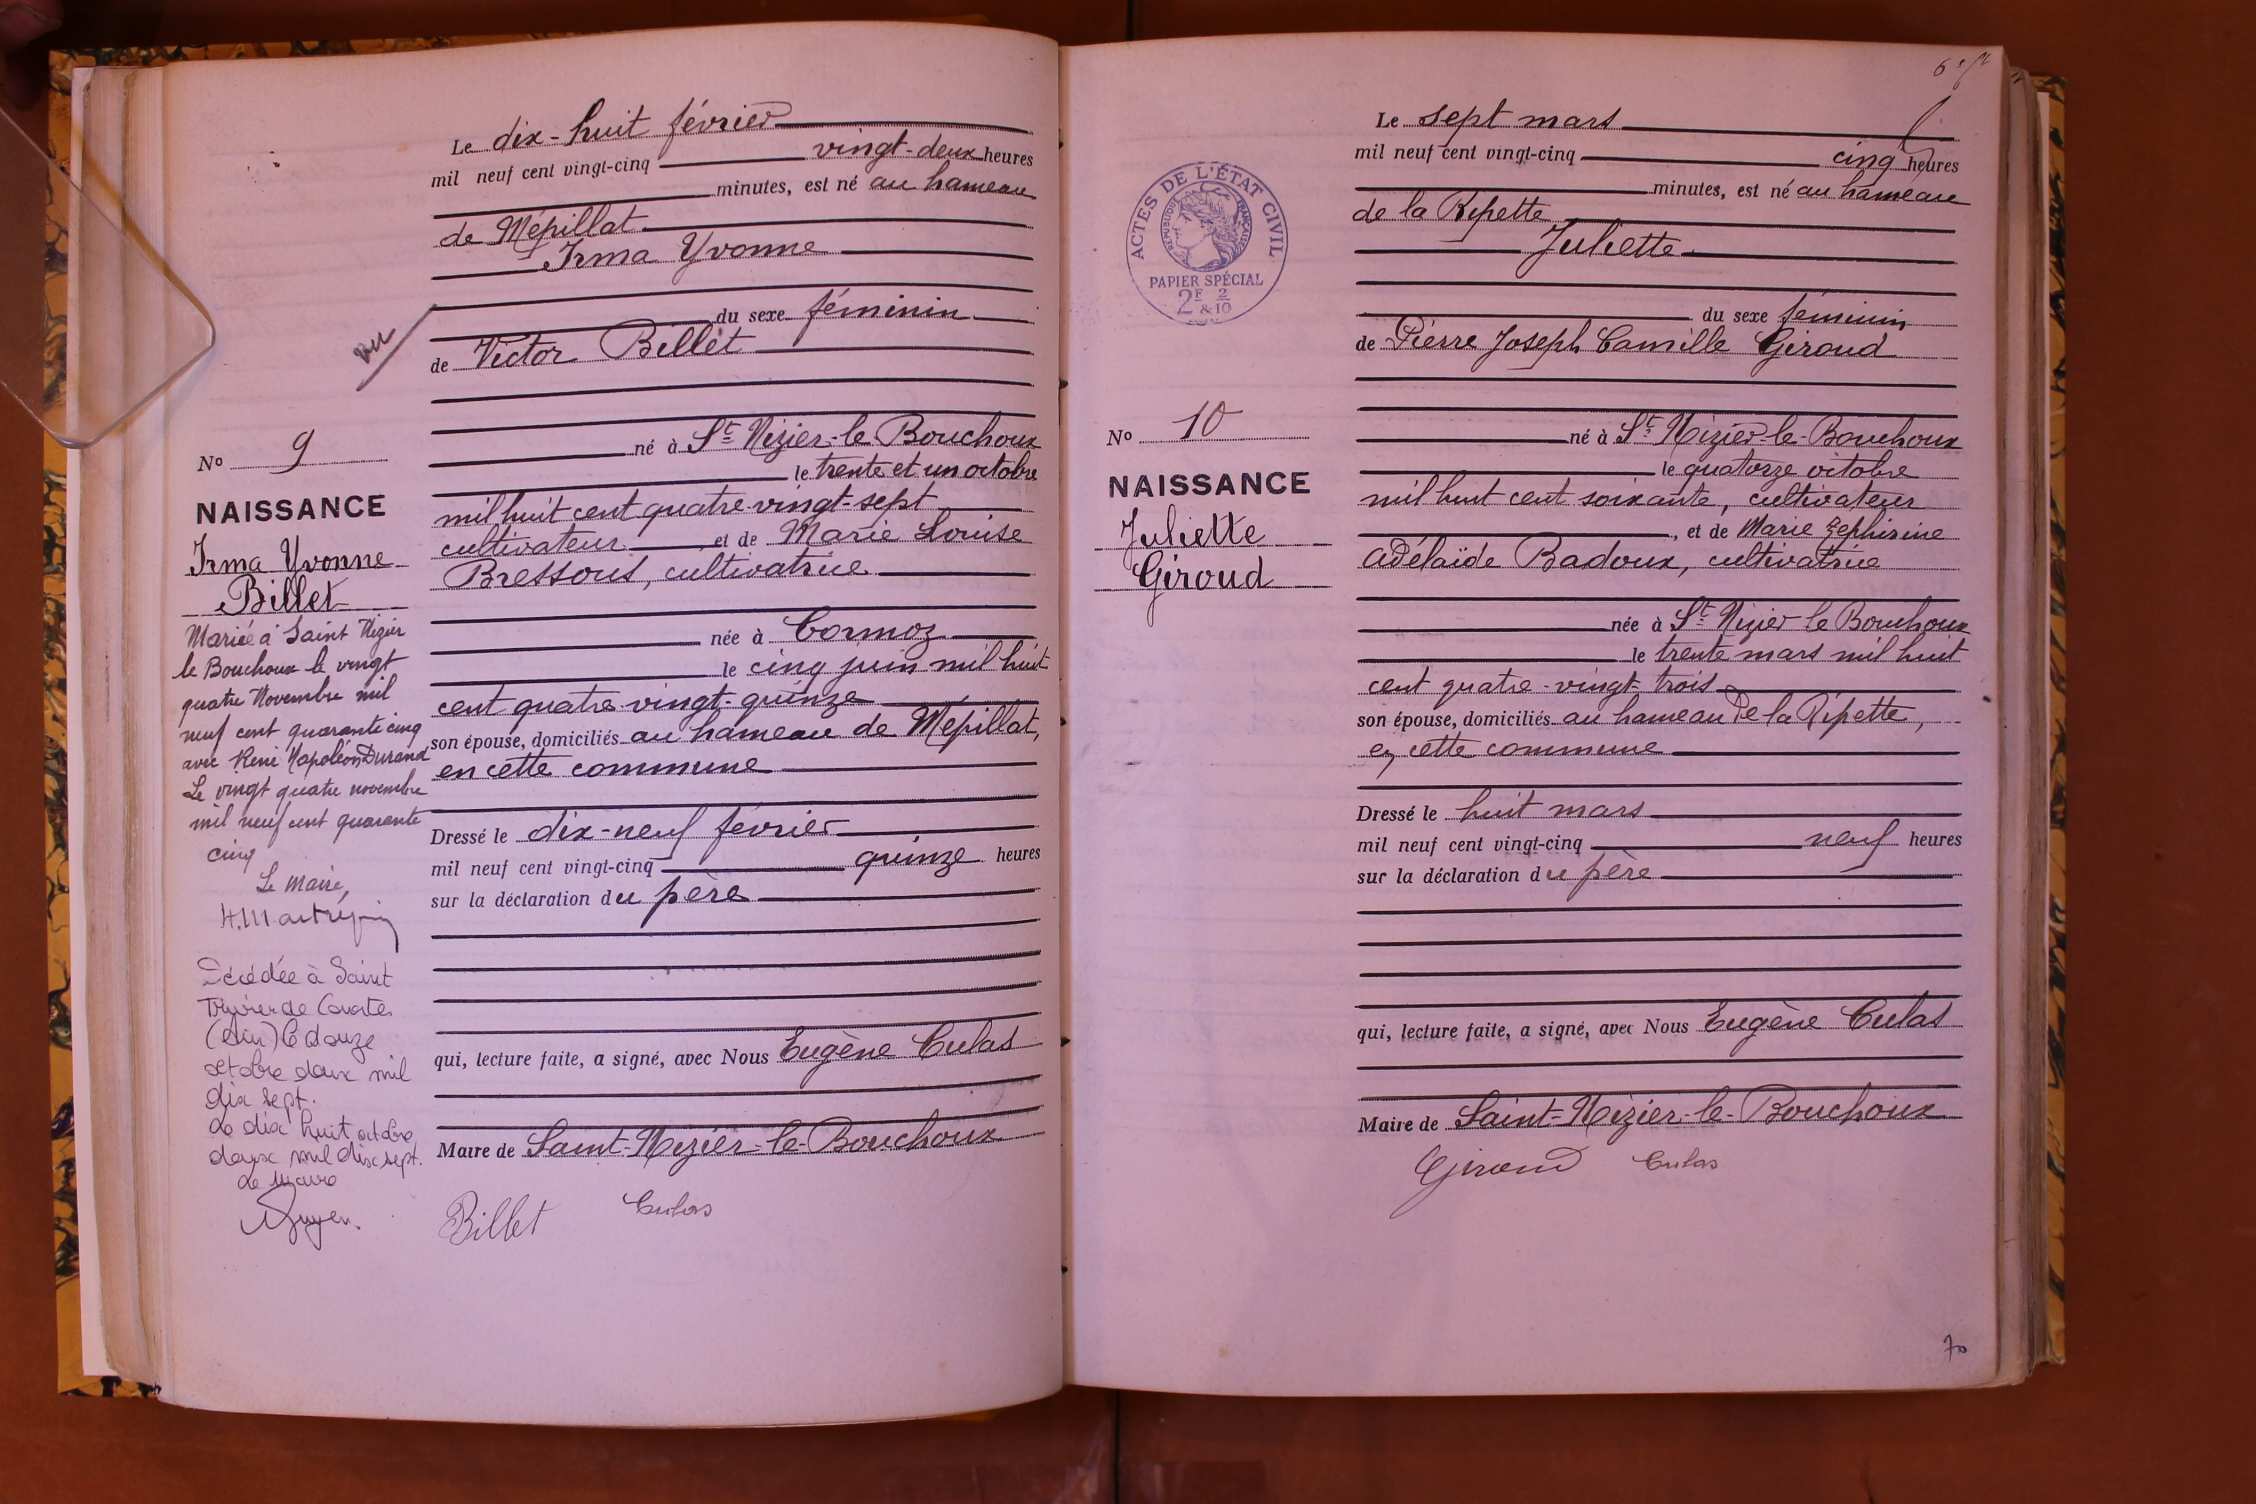 Le dix-huit février
mil neuf cent vingt-cinq vingt-deux heures
minutes, est né au hameau
de Mépillat
Irma Yvonne
du sexe féminin
vu
de Victor Billet
né à St Nizier-le Bouchoux
le trente et un octobre
mil huit cent quatre-vingt-sept
cultivateur, et de Marie Louise
Bressoux, cultivatrice
née à Cormoz
le cinq juin mil huit
cent quatre-vingt-quinze
son épouse, domiciliés au hameau de Mépillat,
en cette commune
Dressé le dix-neuf février
mil neuf cent vingt-cinq quinze heures
sur la déclaration du père
qui, lecture faite, a signé, avec Nous Eugène Culas
Maire de Saint-Nizier-le-Bouchoux
Billet Culas
No 9
NAISSANCE
Irma Yvonne
Billet
Mariée à Saint Nizier
le Bouchoux le vingt
quatre Novembre mil
neuf cent quarante cinq
avec René Napoléon Durand
Le vingt quatre novembre
mil neuf cent quarante
cinq
Le Maire,
Décédée à Saint
Trivier de Courtes
(Ain) le douze
octobre deux mil
dix sept.
Le dix huit octobre
deux mil dix sept.
Le Maire
Le sept mars
mil neuf cent vingt-cinq cinq heures
minutes, est né au hameau
de la Ripette
Juliette
du sexe féminin
de Pierre Joseph Camille Giroud
né à St Nizier-le-Bouchoux
le quatorze octobre
mil huit cent soixante, cultivateur
, et de Marie Zephirine
Adélaïde Badoux, cultivatrice
née à St Nizier le Bouchoux
le trente mars mil huit
cent quatre-vingt-trois
son épouse, domiciliés au hameau de la Ripette,
en cette commune
Dressé le huit mars
mil neuf cent vingt-cinq neuf heures
sur la déclaration du père
qui, lecture faite, a signé, avec Nous Eugène Culas
Maire de Saint-Nizier-le-Bouchoux
Giroud Culas
ACTES DE L'ÉTAT CIVIL
RÉPUBLIQUE FRANÇAISE
PAPIER SPÉCIAL
2F & 2/10
No 10
NAISSANCE
Juliette
Giroud
70